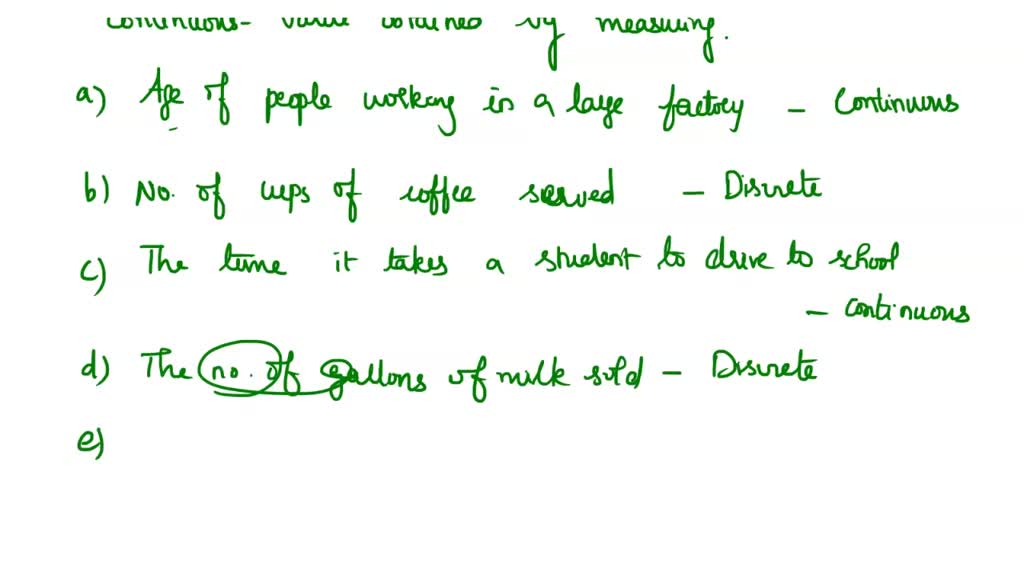 continuous- value obtained by measuring.
a) Age of people working in a large factory - Continuous
b) No. of cups of coffee served - Discrete
c) The time it takes a student to drive to school
- continuous
d) The no. of gallons of milk sold - Discrete
e)